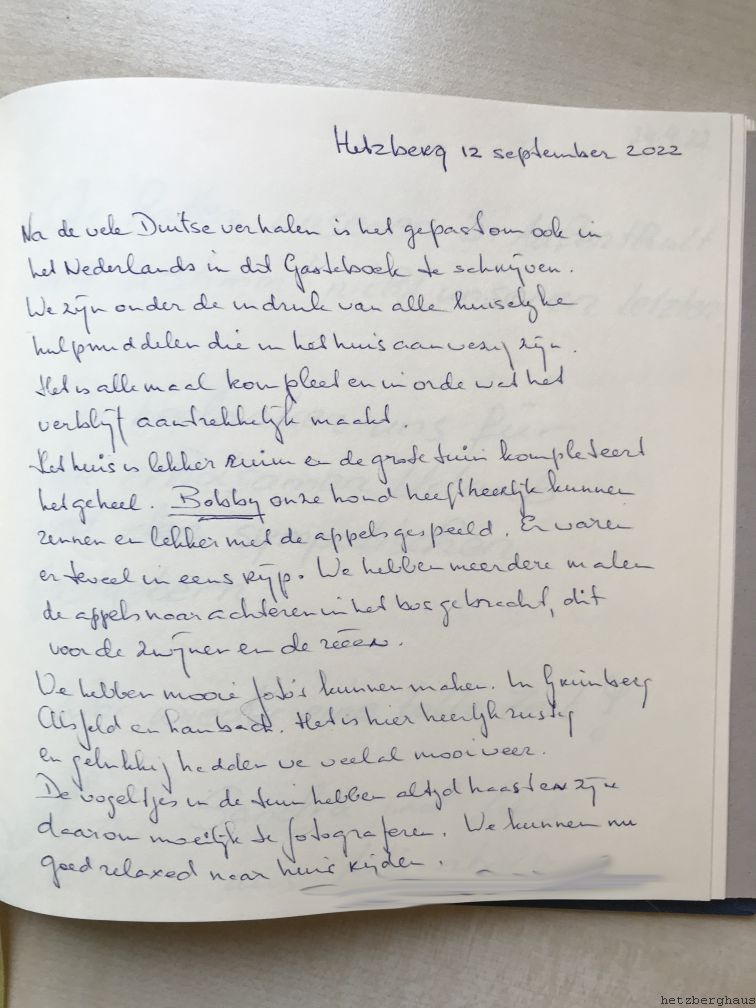 Hetzberg 12 september 2022
Na de vele Duitse verhalen is het gepast om ook in
het Nederlands in dit Gasteboek te schrijven.
We zijn onder de indruk van alle huiselijke
hulpmiddelen die in het huis aanwezig zijn.
Het is allemaal kompleet en in orde wat het
verblijf aantrekkelijk maakt.
Het huis is lekker ruim en de grote tuin kompleteert
het geheel. Bobby onze hond heeft heerlijk kunnen
rennen en lekker met de appels gespeeld. Er waren
er teveel in eens rijp. We hebben meerdere malen
de appels naar achteren in het bos gebracht, dit
voor de zwijnen en de reeën.
We hebben mooie foto's kunnen maken. In Grünberg
Alsfeld en Laubach. Het is hier heerlijk rustig
en gelukkig hadden we veelal mooi weer.
De vogeltjes in de tuin hebben altijd haast en zijn
daarom moeilijk te fotograferen. We kunnen nu
goed relaxed naar huis rijden.
hetzberghaus